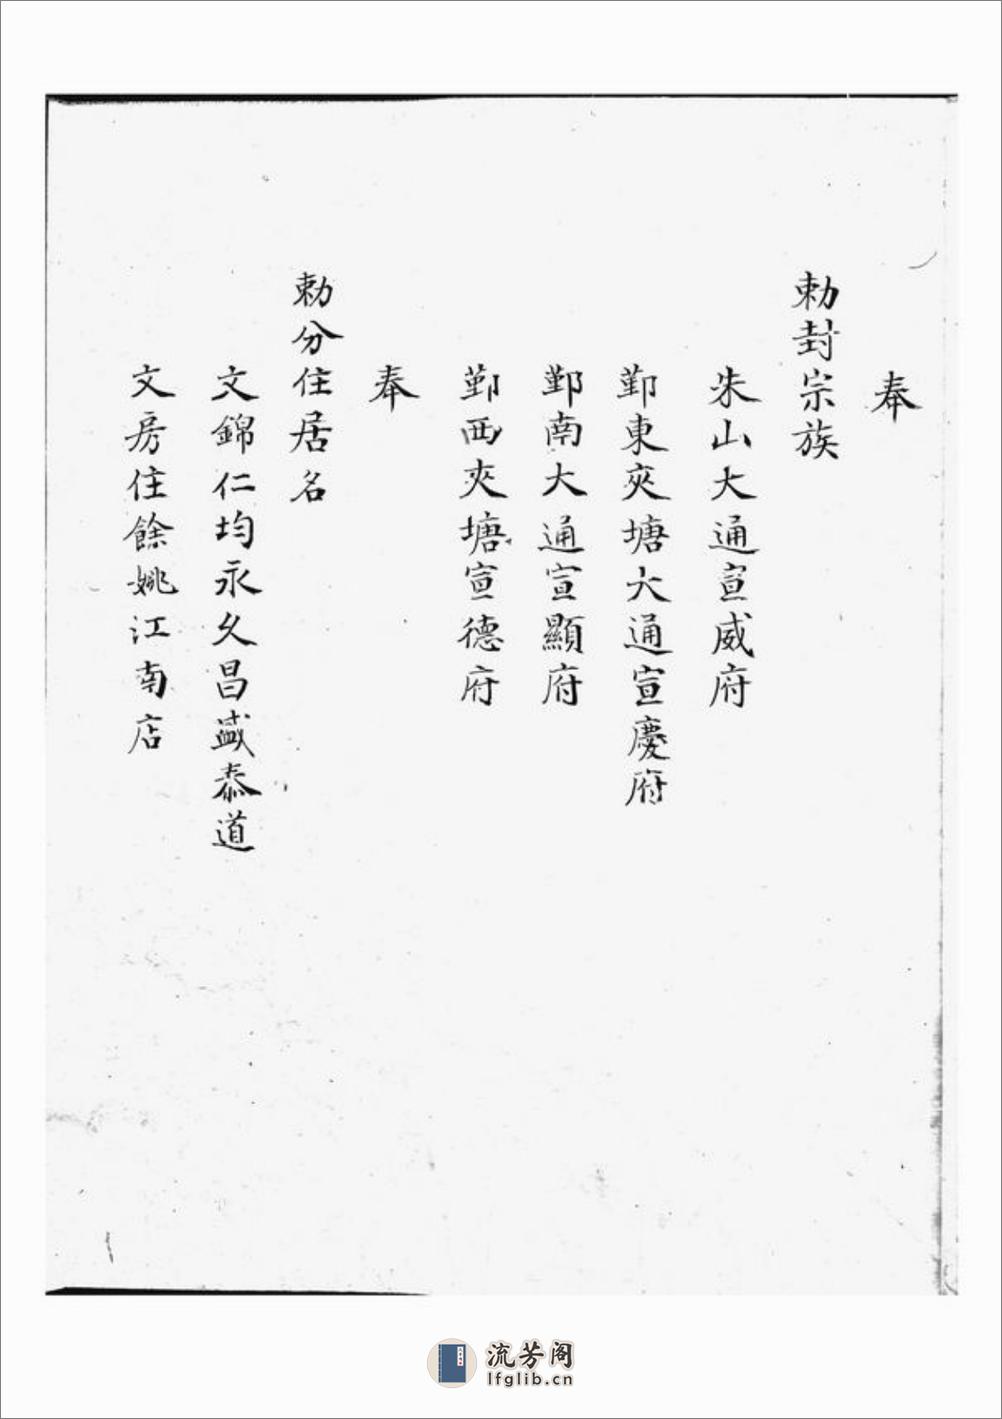 奉
勅封宗族
朱山大通宣威府
鄞東夾塘大通宣慶府
鄞南大通宣顯府
鄞西夾塘宣德府
奉
勅分住居名
文錦仁均永久昌盛泰道
文房住餘姚江南店
流芳阁
lfglib.cn